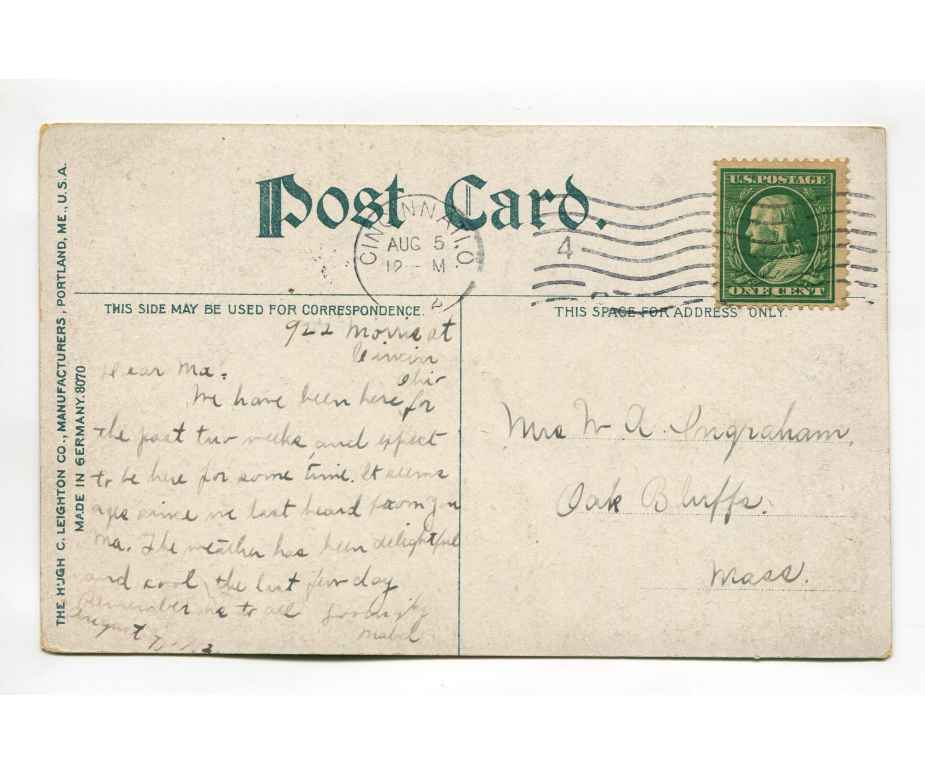 Post Card.
U.S. POSTAGE
ONE CENT
CINCINNATI, O.
AUG 5
12 - M
4
THIS SIDE MAY BE USED FOR CORRESPONDENCE.
THIS SPACE FOR ADDRESS ONLY.
THE HUGH C. LEIGHTON CO., MANUFACTURERS, PORTLAND, ME., U.S.A.
MADE IN GERMANY. 8070
922
Dear Ma:
We have been here for
the past two weeks and expect
to be here for some time. It seems
ages since we last heard from you
Ma. The weather has been delightful
and cool the last few day
Remember me to all
Mabel
August
Mrs W A Ingraham,
Oak Bluffs.
Mass.